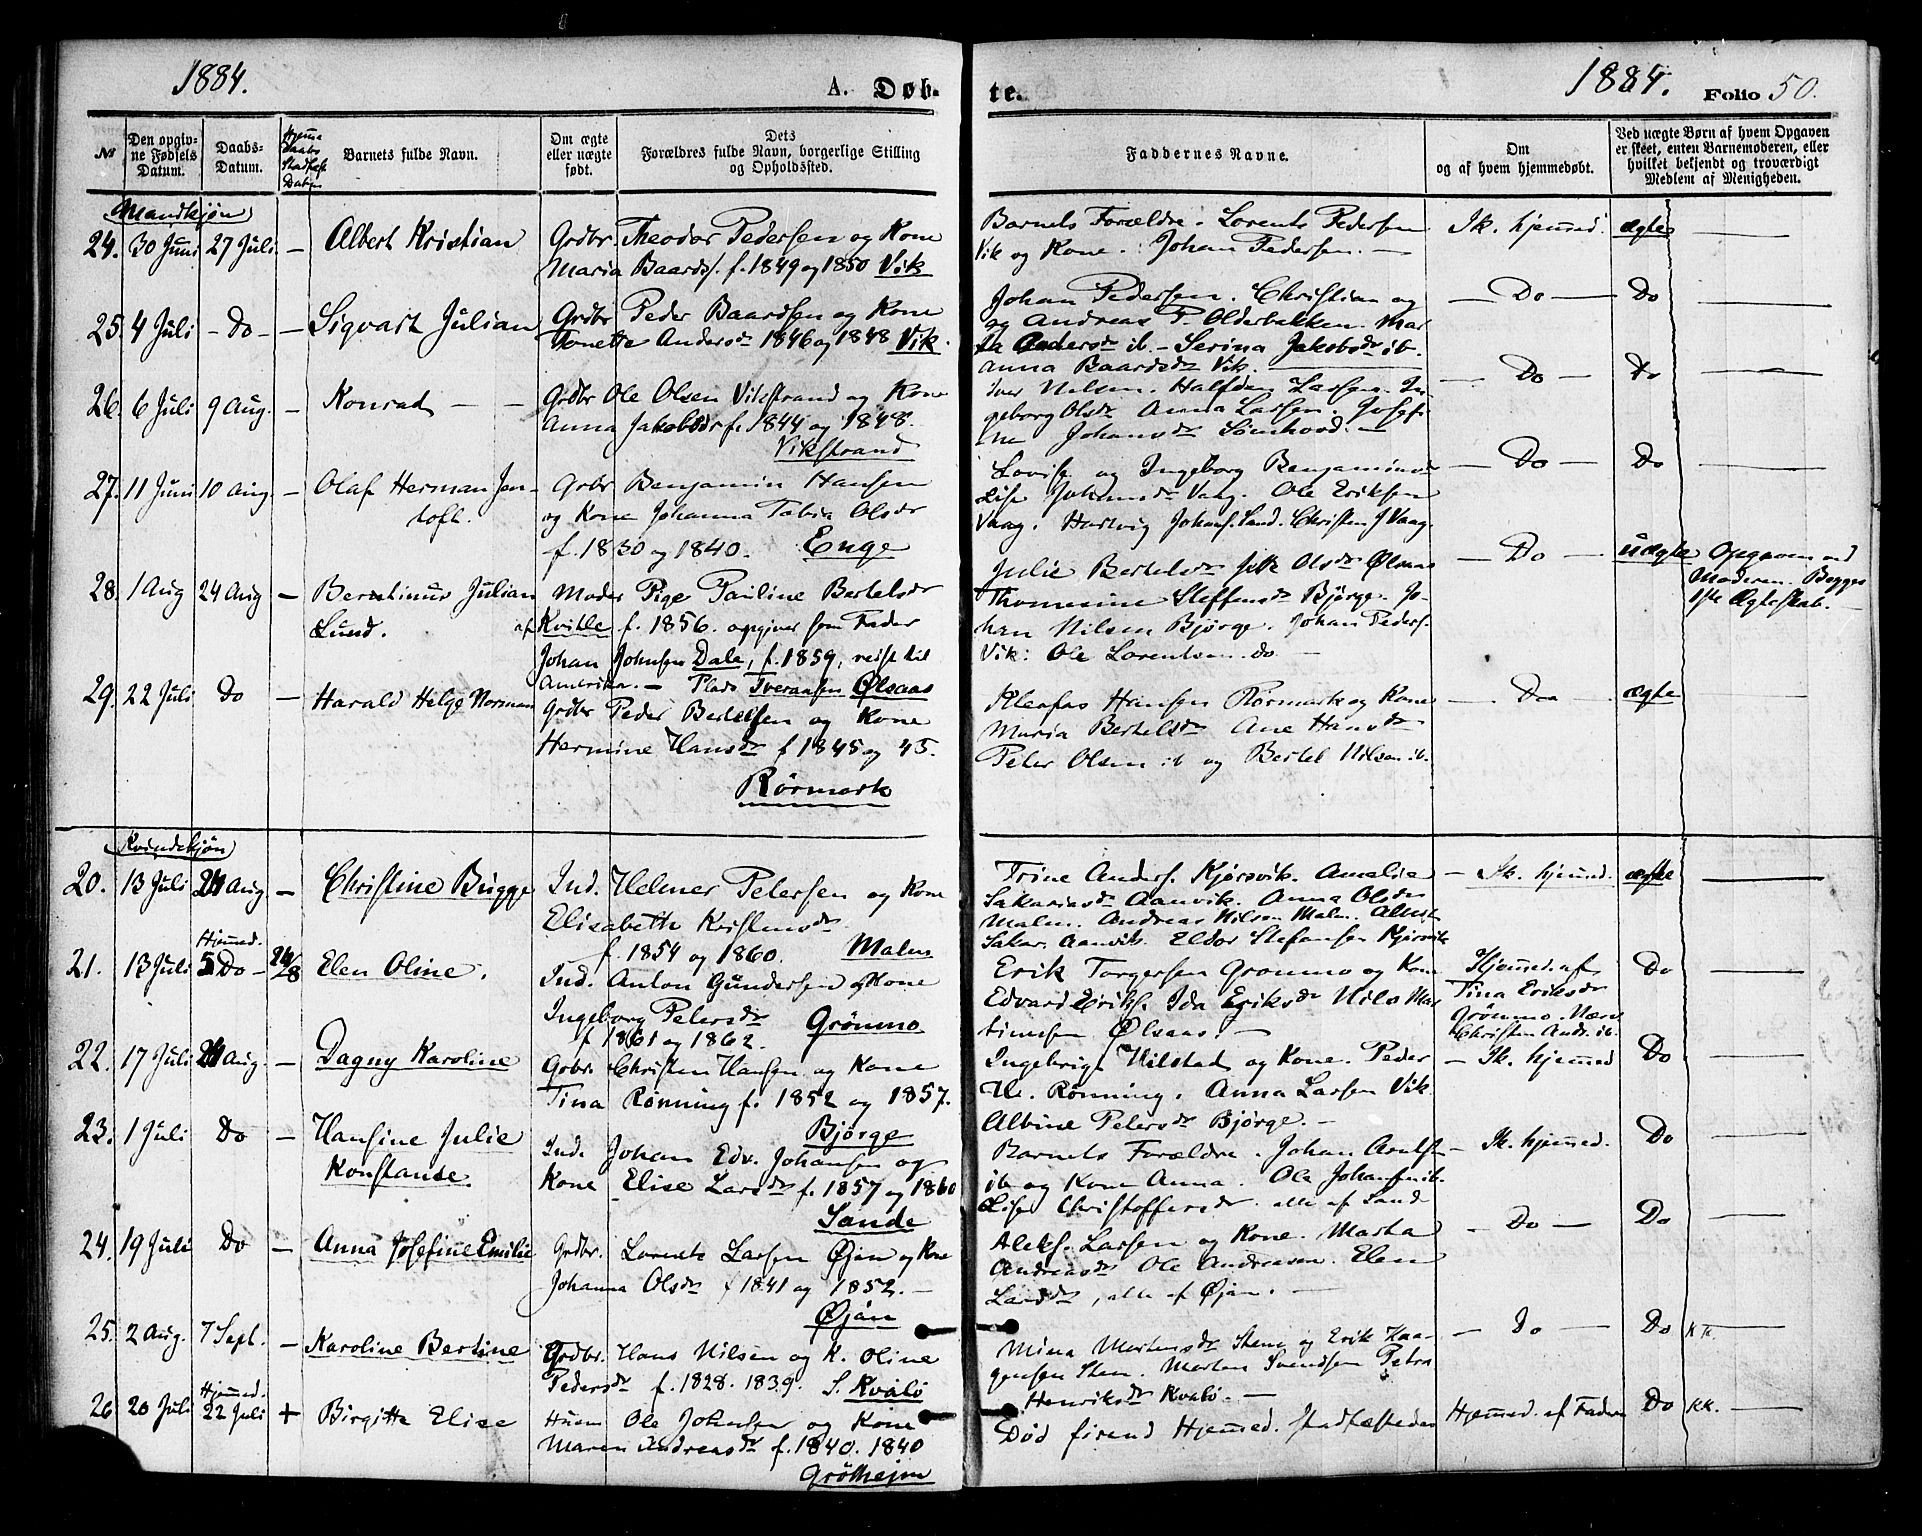 1884.
A. Døb-
te.
1884.
Folio 50.
№
Den opgiv-
ne Fødsels
Datum.
Daabs-
Datum.
Hjemme
Daabs
Stadfæst.
Datum
Barnets fulde Navn.
Om ægte
eller uægte
født.
Dets
Forældres fulde Navn, borgerlige Stilling
og Opholdssted.
Faddernes Navne.
Om
og af hvem hjemmedøbt.
Ved uægte Børn af hvem Opgaven
er skeet, enten Barnemoderen, eller
hvilket bekjendt og troværdigt
Medlem af Menigheden.
Mandkjøn
24. 30 Juni 27 Juli - Albert Kristian
Grdbr Theodor Pedersen og Kone
Maria Baardsd. f. 1849 og 1850 Vik
Barnets Forældre. Lorents Pedersen
Vik og Kone. Johan Pedersen. -
Ik. hjemmed. ægte
25. 4 Juli - Do - - Sigvart Julian
Grdbr Peder Baardsen og Kone
Tonette Andersdr 1846 og 1848 Vik.
Johan Pedersen. Christian og
og Andreas P. Olderbakken. Mar
ta Andersdr ib. - Serina Jakobsdr ib.
Anna Baardsdr Vik.
- Do - Do
26. 6 Juli 9 Aug. - Konrad - -
Grdbr Ole Olsen Vikstrand og Kone
Anna Jakobsdr f. 1844 og 1848.
Vikstrand
Iver Nilsen. Halfdan Larsen. In-
geborg Olsdr Anna Larsen. Josefi-
ne Johansdr
- Do - Do
27. 11 Juni 10 Aug. - Olaf Herman Jen-
toft.
Grdbr Benjamin Hansen
og Kone Johanna Tabia Olsdr
f. 1830 og 1840. Enge
Lovise og Ingeborg Benjaminsdr
Lise Johansdr Vaag. Ole Eriksen
Vaag. Hartvig Johans. Sand. Christen J Vaag.
- Do - Do
28. 1 Aug 24 Aug - Berntinus Julian
Lund.
Moder Pige Pauline Bertelsdr
af Kvitle f. 1856. opgiver som Fader
Johan Johnsen Dale, f. 1859, reist til
Amerika. - Plads Tveraasen Ølsaas
Julie Bertelsdr Olsdr Ølsaas
Thomesine Steffensdr Bjørge. Jo-
han Nilsen Bjørge. Johan Peders.
Vik. Ole Lorentsen do -
- Do - uægte Opgaven ved
Moderen. Begges
1ste Ægteskab.
29. 22 Juli Do - Harald Helge Norman
Grdbr Peder Bertelsen og Kone
Hermine Hansdr f 1845 og 45.
Rørmark
Kleofas Hansen Rørmark og Kone
Maria Bertelsdr Ane Hansdr
Peter Olsen ib og Bertel Nilsen ib.
- Do ægte
Kvindekjøn
20. 13 Juli 24 Aug. - Christine Bugge
Ind. Helmer Petersen og Kone
Elisabeth Kristensdr
f. 1854 og 1860. Malm
Trine Anders. Kjørsvik. Amalie
Sakariasdr Aanvik. Anna Olsdr
Malm. Andreas Nilsen Malm.
Sakar. Aanvik. Eldor Stefansen Kjørsvik
- Ik. hjemmed. ægte
21. 13 Juli Hjemmed.
5 Do - 24/8 Elen Oline.
Ind. Anton Gundersen og Kone
Ingeborg Petersdr Grönmo
f 1861 og 1862.
Erik Torgersen Gronmo og Kone
Edvard Eriks. Ida Eriksdr Nils Mar
tinusen Ølsaas. -
Hjemmed. af
Tina Eriksdr
Grønmo.
Christen Andr. ib.
Do
22. 17 Juli 24 Aug. - Dagny Karoline
Grdbr. Christen Hansen og Kone
Tina Rønning f. 1852 og 1857.
Bjørge
Ingebrigt Hilstad og Kone. Peder
H. Rønning. Anna Larsen Vik.
Albine Petersdr Bjørge. -
- Ik. hjemmed Do
23. 1 Juli Do - Hansine Julie
Konstanse
Ind. Johan Edv. Johansen og
Kone Elise Larsdr f. 1857 og 1860
Sande
Barnets Forældre. Johan Arntsen
ib og Kone Anna. Ole Johansen ib.
Lise Christoffersdr. alle af Sand
- Ik. hjemmed. Do
24. 19 Juli Do - Anna Josefine Emilie
Grdbr. Lorents Larsen Øjan og Kone
Johanna Olsdr f 1841 og 1852. -
Øjan
Aleks. Larsen og Kone. Marta
Andreasdr Ole Andreasen. Elen
Larsdr, alle af Øjan. -
- Do - Do
25. 2 Aug. 7 Sept. - Karoline Bertine
Grdbr. Hans Nilsen og K. Oline
Pedersdr f. 1828. 1839. S. Kvalö
Mina Martensdr Sten og Erik Haa-
gensen Sten. Morten Svendsen Petra
Henriksdr Kvalö. -
- Do - Do
26 20 Juli Hjemmed.
22 Juli + Birgitte Elise
Husm Ole Johnsen og Kone
Maren Andreasdr f. 1840. 1840
Grötheim
Død førend Hjemmed. stadfæstedes
Hjemmed. af Faderen Do KK.